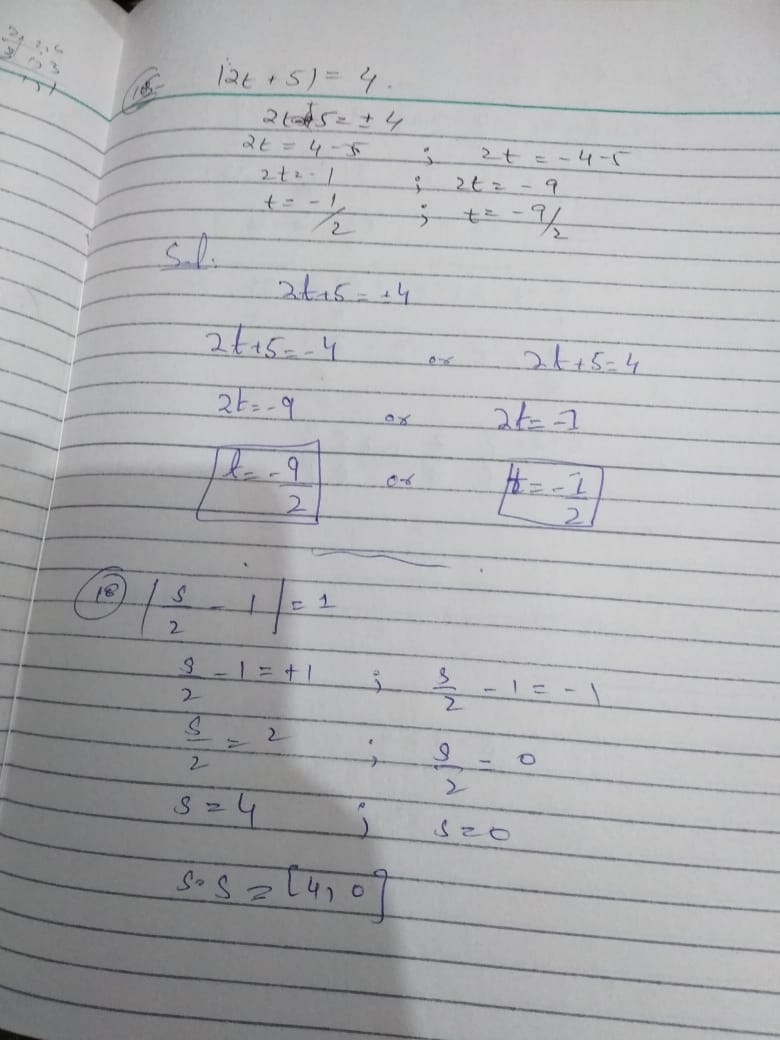 |2t + 5| = 4.
2t+5 = ± 4
2t = 4-5 ; 2t = -4-5
2t = -1 ; 2t = -9
t = -1/2 ; t = -9/2
Sol.
2t+5 = ±4
2t+5=-4 or 2t+5=4
2t=-9 or 2t=-1
t=-9/2 or t=-1/2
18 |s/2 - 1| = 1
s/2 - 1 = +1 ; s/2 - 1 = -1
s/2 = 2 ; s/2 = 0
s = 4 ; s = 0
S.S = [4, 0]